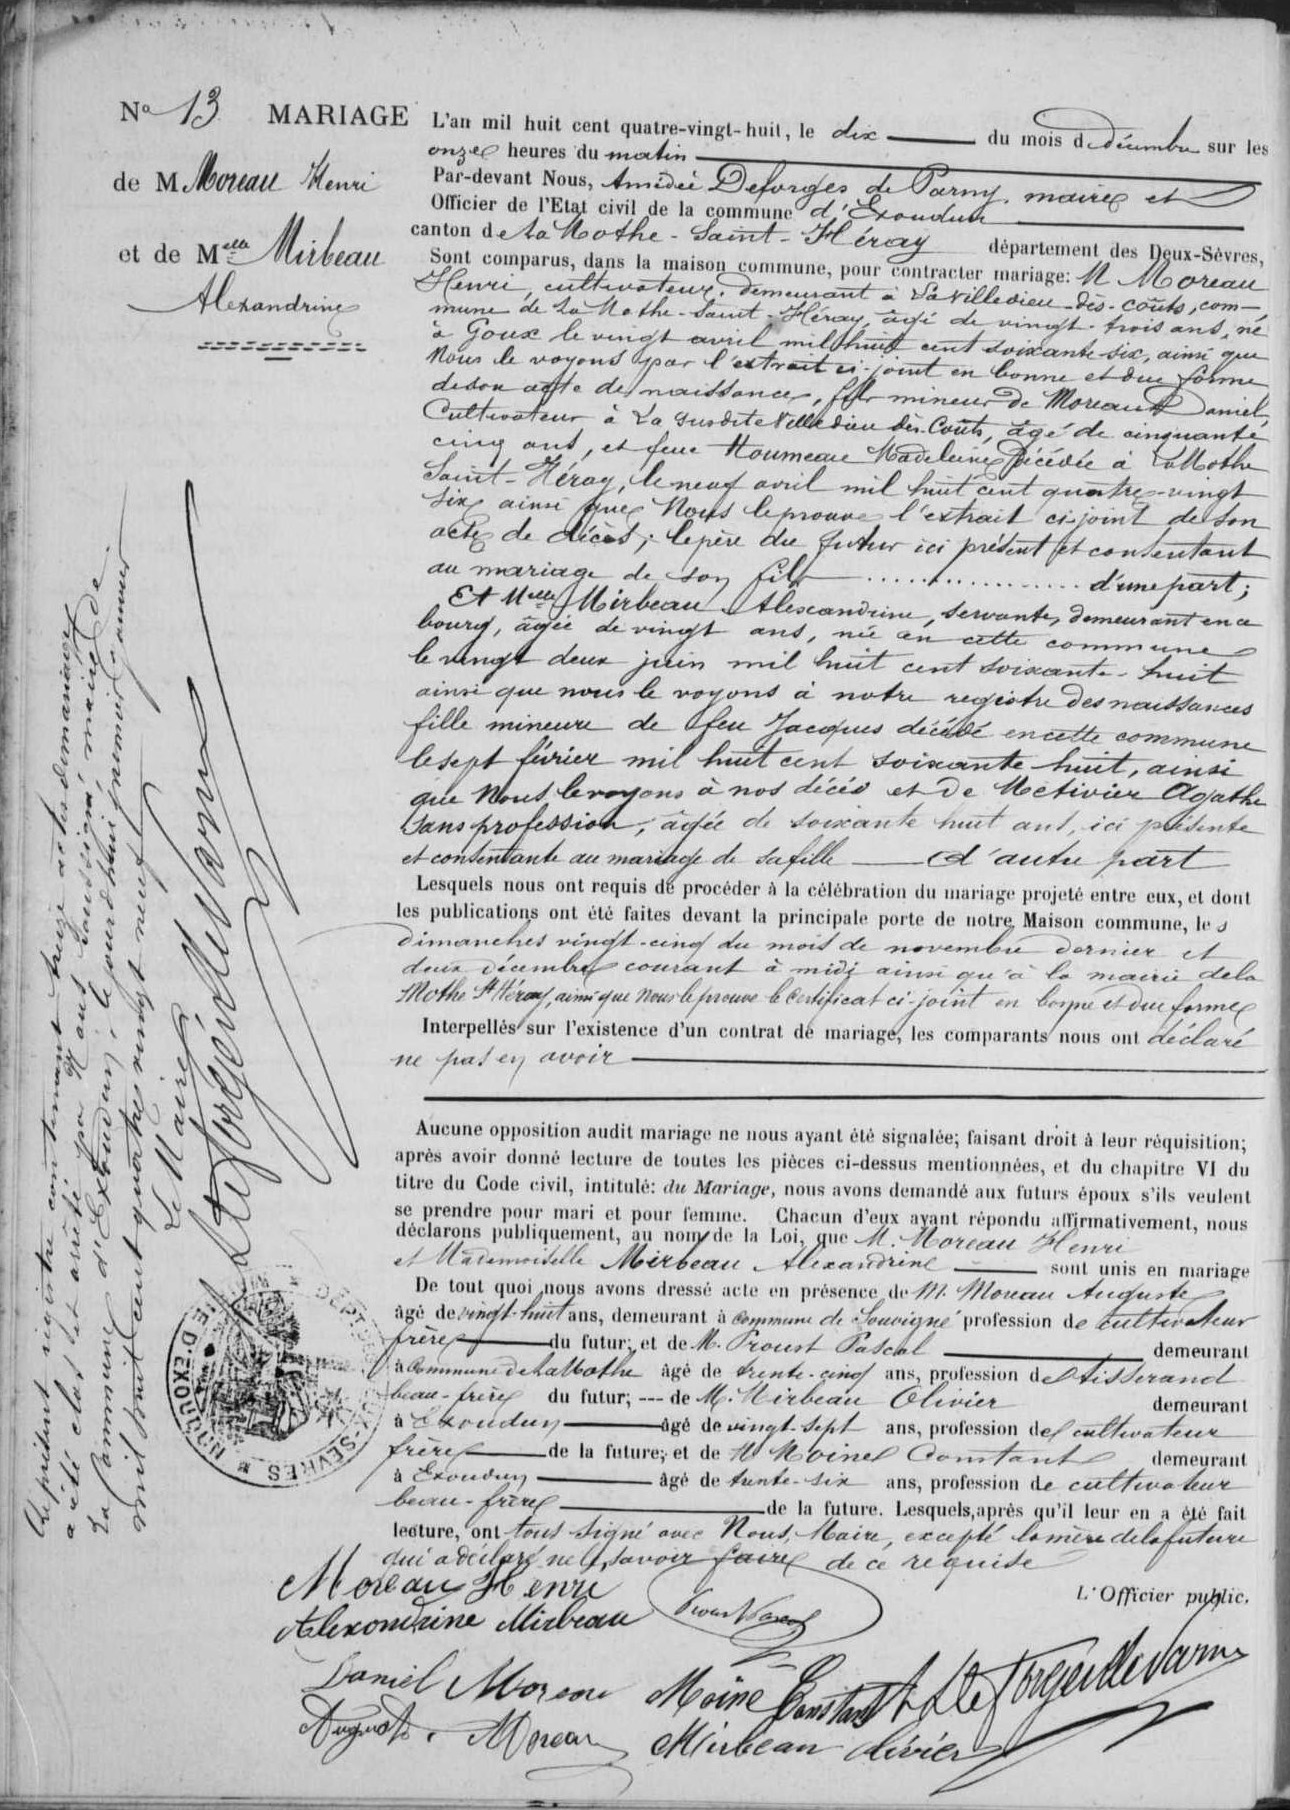 No 13 MARIAGE
de M Moreau Henri
et de Melle Mirbeau
Alexandrine
L'an mil huit cent quatre-vingt-huit, le dix du mois d décembre sur les
onze heures du matin
Par-devant Nous, Amédée Deforges de Parny, maire et
Officier de l'Etat civil de la commune d'Exoudun
canton de La Mothe-Saint-Héray département des Deux-Sèvres,
Sont comparus, dans la maison commune, pour contracter mariage: M Moreau
Henri, cultivateur, demeurant à La Villedieu-dès-coûts, com-
mune de La Mothe-Saint-Héray, âgé de vingt-trois ans, né
à Goux le vingt avril mil huit cent soixante-six, ainsi que
Nous le voyons par l'extrait ci-joint en bonne et due forme
de son acte de naissance, fils mineur de Moreau Daniel,
Cultivateur à La susdite Villedieu dès-Coûts, âgé de cinquante
cinq ans, et feue Houmeau Madeleine décédée à La Mothe
Saint-Héray, le neuf avril mil huit cent quatre-vingt
six ainsi que Nous le prouve l'extrait ci-joint de son
acte de décès; le père du futur ici présent et consentant
au mariage de son fils ................ d'une part;
Et Melle Mirbeau Alexandrine, servante, demeurant en ce
bourg, âgée de vingt ans, née en cette commune
le vingt deux juin mil huit cent soixante-huit
ainsi que nous le voyons à notre registre des naissances
fille mineure de feu Jacques décédé en cette commune
le sept février mil huit cent soixante huit, ainsi
que Nous le voyons à nos décès et de Métivier Agathe
sans profession, âgée de soixante huit ans, ici présente
et consentante au mariage de sa fille d'autre part
Lesquels nous ont requis de procéder à la célébration du mariage projeté entre eux, et dont
les publications ont été faites devant la principale porte de notre Maison commune, les
dimanches vingt-cinq du mois de novembre dernier et
deux décembre courant à midi ainsi qu'à la mairie de la
Mothe St Héray, ainsi que Nous le prouve le certificat ci-joint en bonne et due forme
Interpellés sur l'existence d'un contrat de mariage, les comparants nous ont déclaré
ne pas en avoir
Aucune opposition audit mariage ne nous ayant été signalée; faisant droit à leur réquisition;
après avoir donné lecture de toutes les pièces ci-dessus mentionnées, et du chapitre VI du
titre du Code civil, intitulé: du Mariage, nous avons demandé aux futurs époux s'ils veulent
se prendre pour mari et pour femme. Chacun d'eux ayant répondu affirmativement, nous
déclarons publiquement, au nom de la Loi, que M. Moreau Henri
et Mademoiselle Mirbeau Alexandrine sont unis en mariage
De tout quoi nous avons dressé acte en présence de M. Moreau Auguste
âgé de vingt-huit ans, demeurant à commune de Souvigné profession de cultivateur
frère du futur; et de M. Proust Pascal demeurant
à Commune de La Mothe âgé de trente-cinq ans, profession de tisserand
beau-frère du futur; --- de M. Mirbeau Olivier demeurant
à Exoudun âgé de vingt-sept ans, profession de cultivateur
frère de la future; et de M Moine Constant demeurant
à Exoudun âgé de trente-six ans, profession de cultivateur
beau-frère de la future. Lesquels, après qu'il leur en a été fait
lecture, ont tous signé avec Nous, Maire, excepté la mère de la future
qui a déclaré ne le savoir faire de ce requise
L'Officier public.
Moreau Henri
Alexandrine Mirbeau
Daniel Moreau Moine Constant
Auguste Moreau Mirbeau Olivier
Le présent registre contenant treize actes de mariage
a été clos et arrêté par Nous soussigné maire de
la commune d'Exoudun, le jourd'hui premier janvier
mil huit cent quatre vingt neuf
Le Maire
MAIRIE D'EXOUDUN * DEPT DES DEUX-SÈVRES *